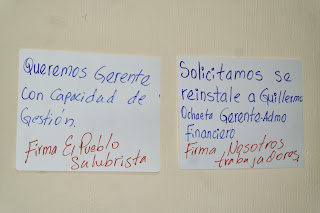 Queremos Gerente
con Capacidad de
Gestión.
Firma El Pueblo
Salubrista
Solicitamos se
reinstale a Guillermo
Ochaeta Gerente Admo
Financiero
Firma Nosotros
trabajadores